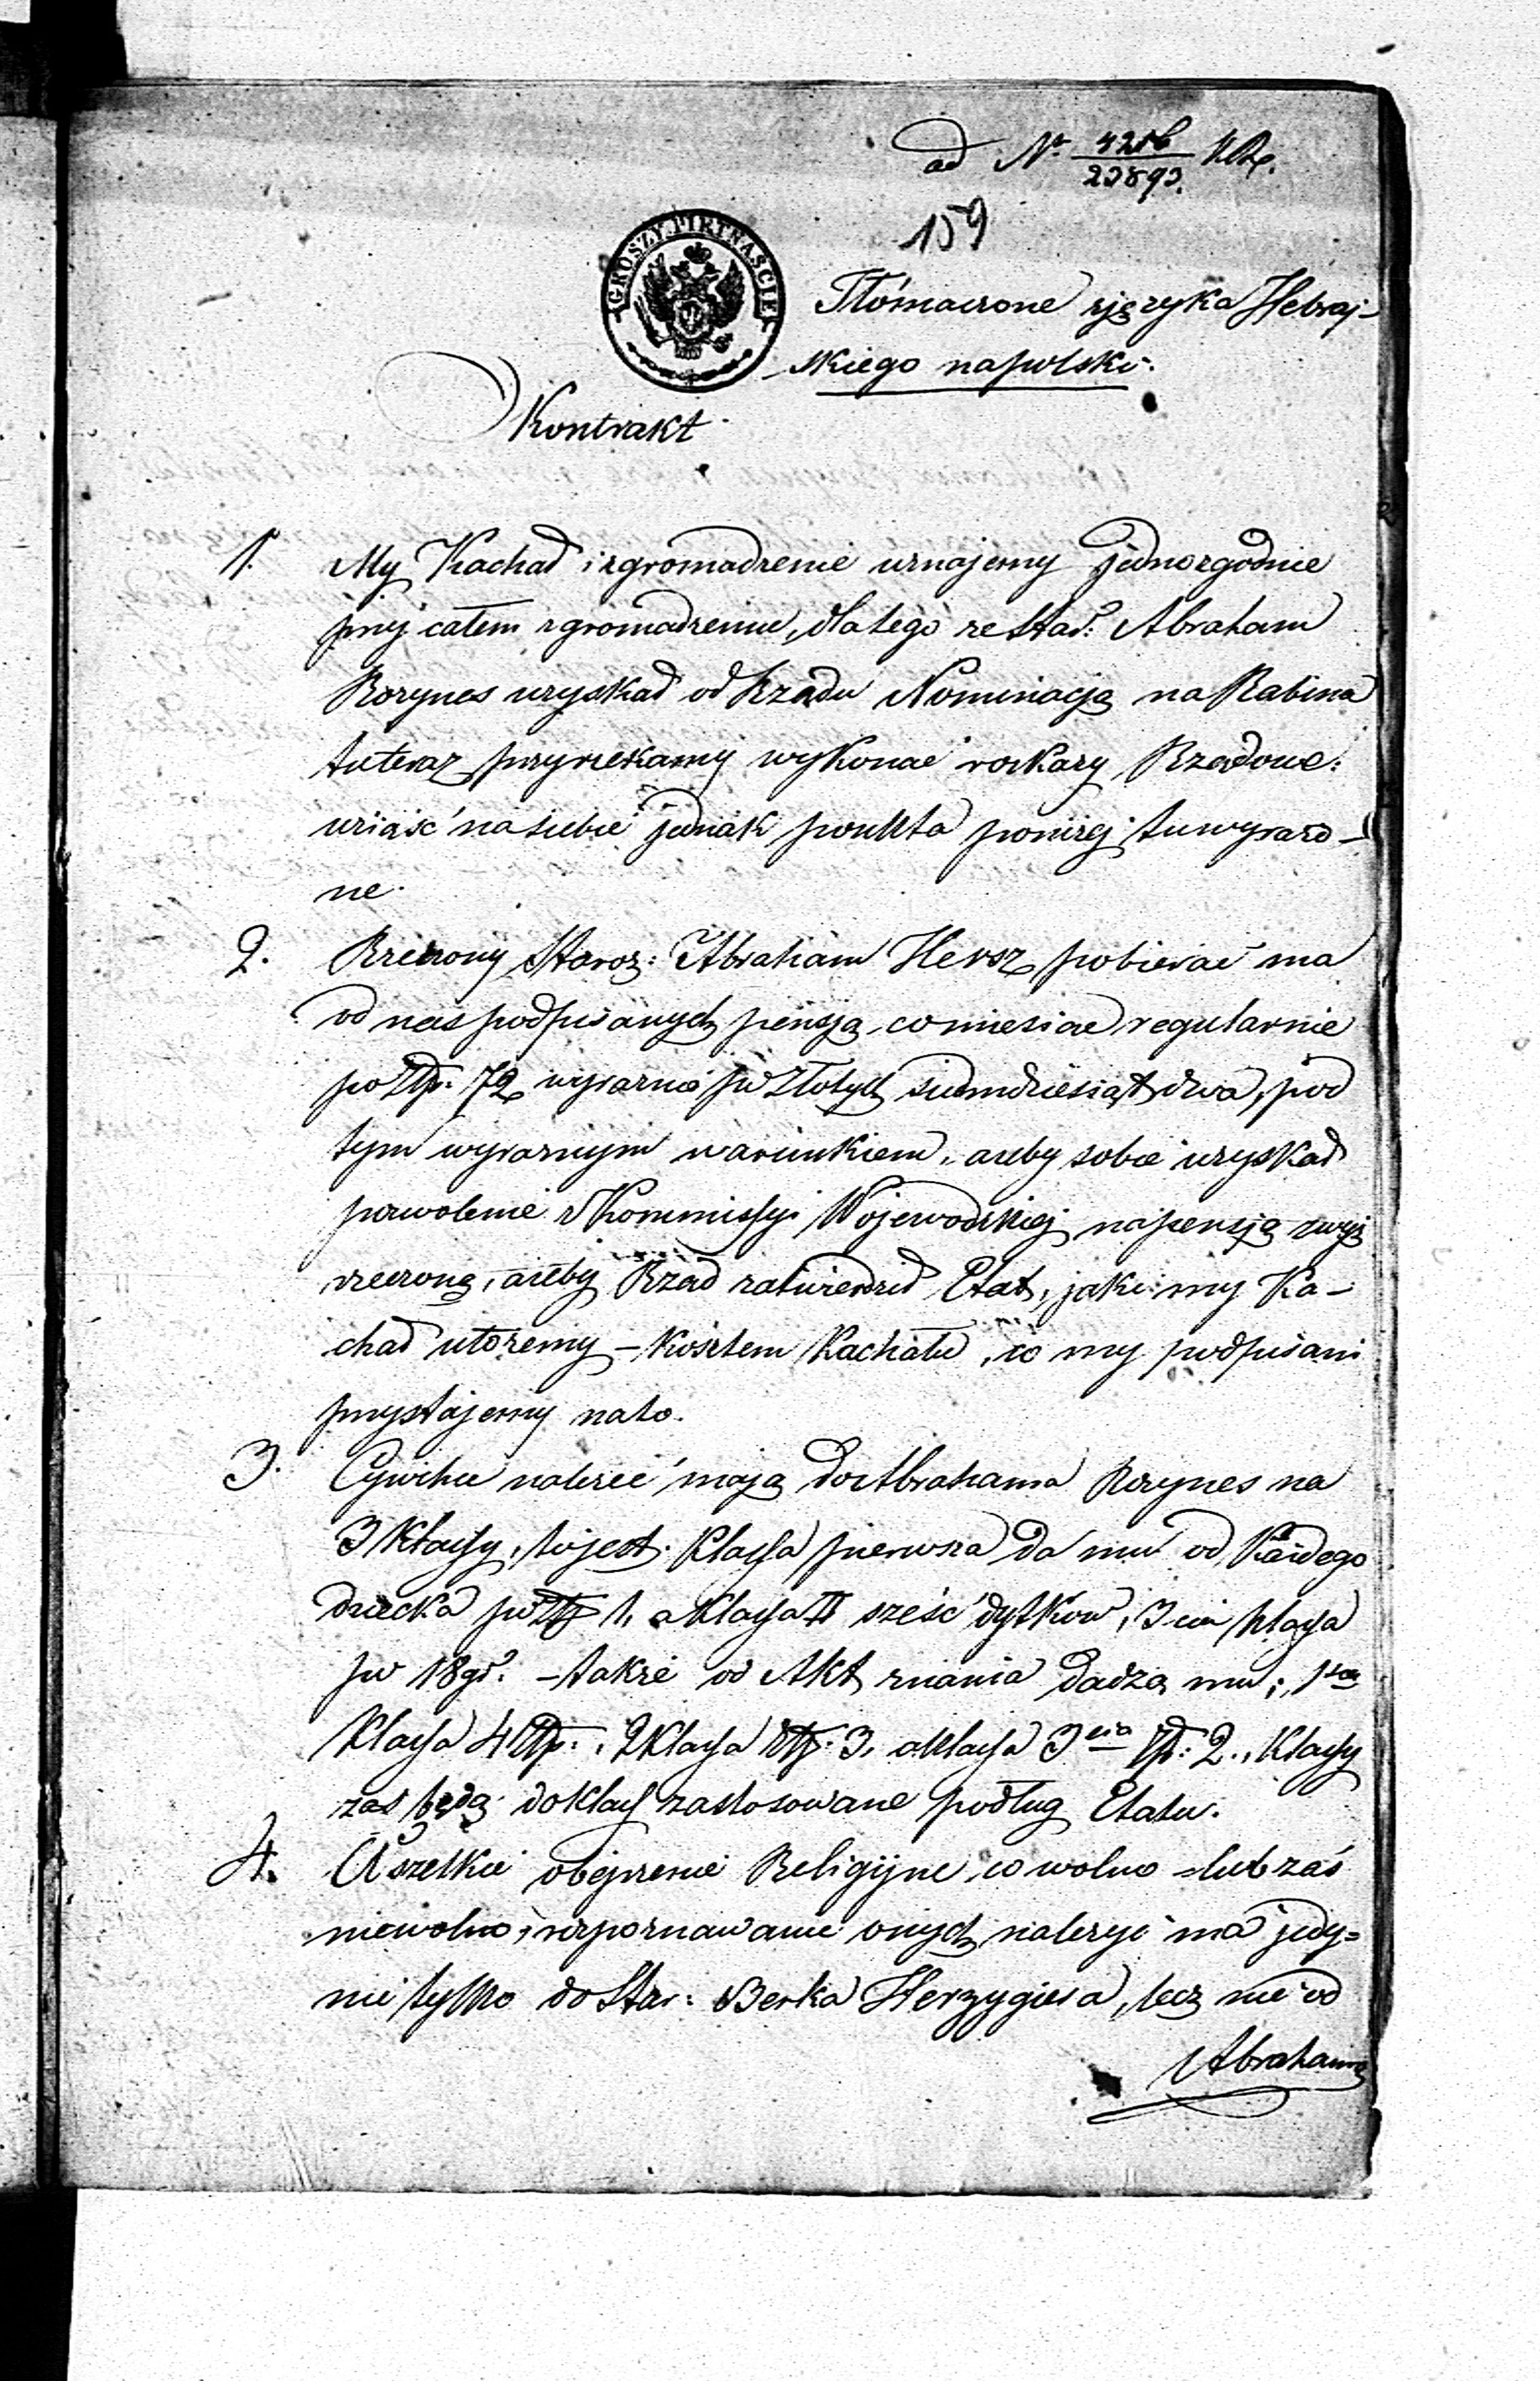 ad Nr. 4216/23893.
159
GROSZY PIETNAŚCIE
Tłómaczone zjęzyka Hebraj-
skiego napolski.
Kontrakt
1. My Kachał i zgromadzenie uznajemy jednozgodnie
przy całem zgromadzeniu, dlatego ze Star: Abraham
Rozynes uzyskał od Rządu Nominacją na Rabina
tuteraz przyrzekamy wykonać roskazy Rządowe:
wziąść nasiebie jednak punkta poniżej tuwyraźo-
ne.
2. Rzeczony Staroz: Abraham Hersz pobierać ma
od nas podpisanych pensją comiesiąc regularnie
po Złp: 72 wyraźnie po Złotych siedmdziesiąt dwa, pod
tym wyraźnym warunkiem, ażeby sobie uzyskał
pozwolenie Kommissyi Wojewodzkiej napensją zwyż
rzeczoną, ażeby Rząd zatwierdził Etat, jaki my Ka-
chał ułożemy – kosztem Kachału, co my podpisani
przystajemy nato.
3. Cywilne należeć mają do Abrahama Rozynes na
3 Klassy, tojest. Klassa pierwsza da mu od Każdego
dziecka po Złp 1, a Klassa II sześć dytków, 3cia Klassa
po 18 gr. – także od Akt znania dadzą mu; 1sza
Klassa 4 Złp:, 2 Klassa Złp: 3, a Klassa 3cia Złp: 2., Klassy
zaś będą do Klass zastosowane podług Etatu.
4. Wszelkie obejrzenie Religijne, co wolno lub zaś
niewolno, i rozpoznawanie onych należyć ma jedy=
nie tylko do Star: Berka Herzygiera, lecz nie od
Abrahama